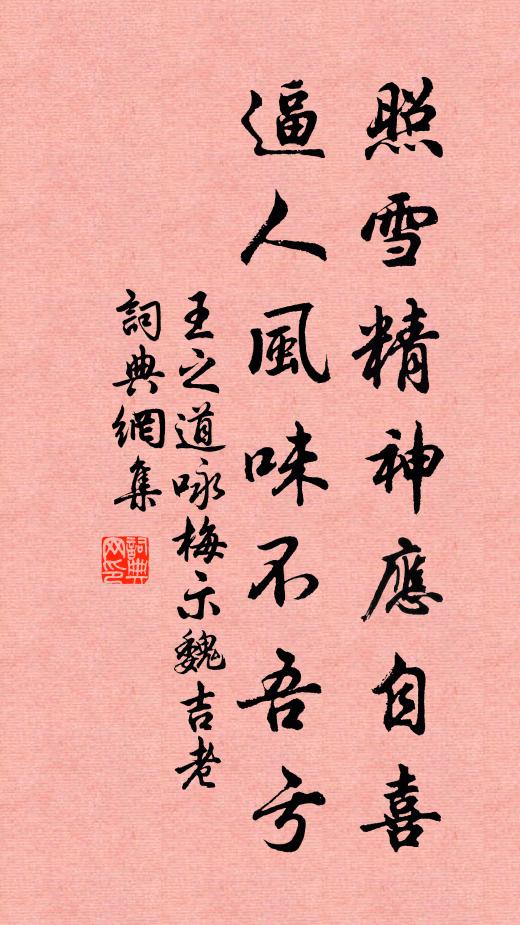 照雪精神應自喜
逼人風味不吾亏
王之道咏梅示魏吉老
詞典網集
詞典
网印